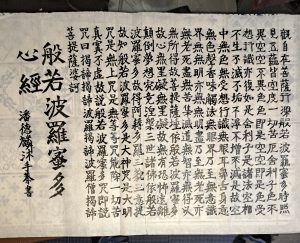 觀自在菩薩行深般若波羅蜜多時照
見五蘊皆空度一切苦厄舍利子色不
異空空不異色色即是空空即是色受
想行識亦復如是舍利子是諸法空相
不生不滅不垢不淨不增不減是故空
中無色無受想行識無眼耳鼻舌身意
無色聲香味觸法無眼界乃至無意識
界無無明亦無無明盡乃至無老死亦
無老死盡無苦集滅道無智亦無得以
無所得故菩提薩埵依般若波羅蜜多
故心無罣礙無罣礙故無有恐怖遠離
顛倒夢想究竟涅槃三世諸佛依般若
波羅蜜多故得阿耨多羅三藐三菩提
故知般若波羅蜜多是大神咒是大明
咒是無上咒是無等等咒能除一切苦
真實不虛故說般若波羅蜜多咒即說
咒曰揭諦揭諦波羅揭諦波羅僧揭諦
菩提薩婆訶
般若波羅蜜多
心經
潘德麟沐手奉書